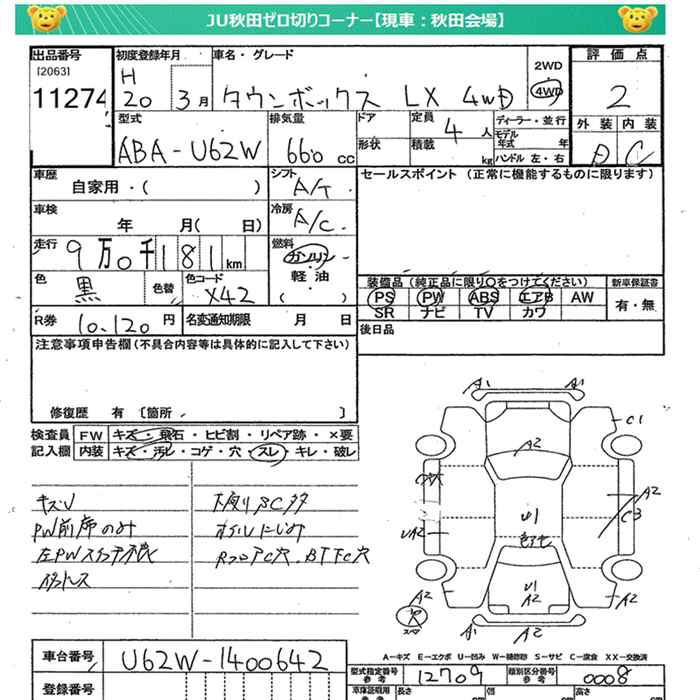 JU秋田ゼロ切りコーナー【現車：秋田会場】
出品番号 初度登録年月 車名・グレード 評価点
[2063] H 2WD
11274 20 3月 タウンボックス LX 4WD 4WD 2
型式 排気量 ドア 定員 ディーラー・並行 外装 内装
ABA-U62W 660cc 4人 モデル年式 年 D C
形状 積載 kg ハンドル 左・右
車歴 自家用・( ) シフト A/T セールスポイント (正常に機能するものに限ります)
車検 年 月( 日) 冷房 A/C
走行 9万0千181km 燃料 ガソリン
軽油
( )
色 黒 色替 色コード X42
装備品 (純正品に限り○をつけてください) 新車保証書
PS PW ABS エアB AW 有・無
SR ナビ TV カワ
R券 10,120円 名変通知期限 月 日 後日品
注意事項申告欄(不具合内容等は具体的に記入して下さい)
修復歴 有 〔箇所 〕
検査員 FW キズ・飛石・ヒビ割・リペア跡・×要
記入欄 内装 キズ・汚レ・コゲ・穴・スレ・キレ・破レ
キズU
PW前席のみ
下廻りSC多
オイルにじみ
A1 A1
C1
A2
A2
C3
UA2
U1
U1
A2
A2 A2
A1 A2
スペア
A－キズ E－エクボ U－凹ミ W－補修跡 S－サビ C－腐食 XX－交換済
車台番号 U62W-1400642
型式指定番号 参考 12709 類別区分番号 参考 0008
登録番号
車庫証明用 参考 長さ 幅 高さ